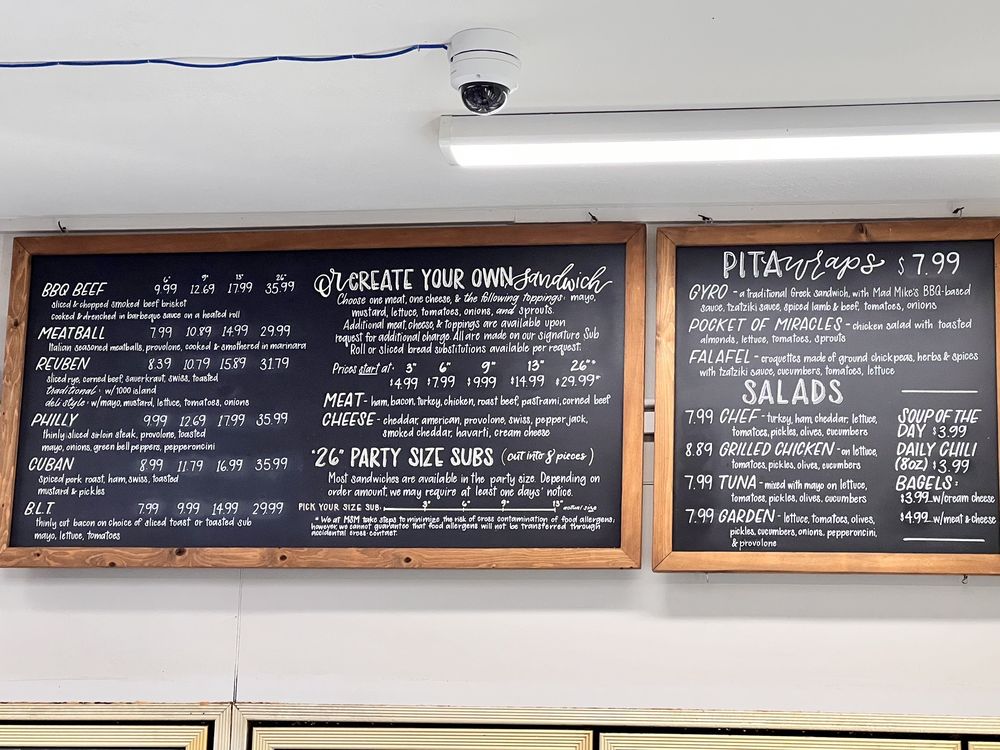 6" 9" 13" 26"
BBQ BEEF 9.99 12.69 17.99 35.99
sliced & chopped smoked beef brisket
cooked & drenched in barbeque sauce on a heated roll
MEATBALL 7.99 10.89 14.99 29.99
Italian seasoned meatballs, provolone, cooked & smothered in marinara
REUBEN 8.39 10.79 15.89 31.79
sliced rye, corned beef, sauerkraut, swiss, toasted
traditional - w/1000 island
deli style - w/mayo, mustard, lettuce, tomatoes, onions
PHILLY 9.99 12.69 17.99 35.99
thinly sliced sirloin steak, provolone, toasted
mayo, onions, green bell peppers, pepperoncini
CUBAN 8.99 11.79 16.99 35.99
Spiced pork roast, ham, swiss, toasted
mustard & pickles
B.L.T 7.99 9.99 14.99 29.99
thinly cut bacon on choice of sliced toast or toasted sub
mayo, lettuce, tomatoes
or CREATE YOUR OWN sandwich
Choose one meat, one cheese, & the following toppings: mayo,
mustard, lettuce, tomatoes, onions, and sprouts.
Additional meat, cheese, & toppings are available upon
request for additional charge. All are made on our signature Sub
Roll or sliced bread substitutions available per request.
Prices start at: 3" 6" 9" 13" 26"*
$4.99 $7.99 $9.99 $14.99 $29.99*
MEAT - ham, bacon, turkey, chicken, roast beef, pastrami, corned beef
CHEESE - cheddar, american, provolone, swiss, pepper jack,
smoked cheddar, havarti, cream cheese
*26" PARTY SIZE SUBS (cut into 8 pieces)
Most sandwiches are available in the party size. Depending on
order amount, we may require at least one days' notice.
PICK YOUR SIZE SUB: 3" 6" 9" 13" actual size
* We at MSM take steps to minimize the risk of cross contamination of food allergens;
however, we cannot guarantee that food allergens will not be transferred through
accidental cross-contact.
PITA wraps $7.99
GYRO - a traditional Greek sandwich, with Mad Mike's BBQ-based
sauce, tzatziki sauce, spiced lamb & beef, tomatoes, onions
POCKET OF MIRACLES - chicken salad with toasted
almonds, lettuce, tomatoes, sprouts
FALAFEL - croquettes made of ground chickpeas, herbs & spices
with tzatziki sauce, cucumbers, tomatoes, lettuce
SALADS
7.99 CHEF - turkey, ham, cheddar, lettuce,
tomatoes, pickles, olives, cucumbers
8.89 GRILLED CHICKEN - on lettuce,
tomatoes, pickles, olives, cucumbers
7.99 TUNA - mixed with mayo on lettuce,
tomatoes, pickles, olives, cucumbers
7.99 GARDEN - lettuce, tomatoes, olives,
pickles, cucumbers, onions, pepperoncini,
& provolone
SOUP OF THE
DAY $3.99
DAILY CHILI
(8oz) $3.99
BAGELS:
$3.99 w/cream cheese
$4.99 w/meat & cheese